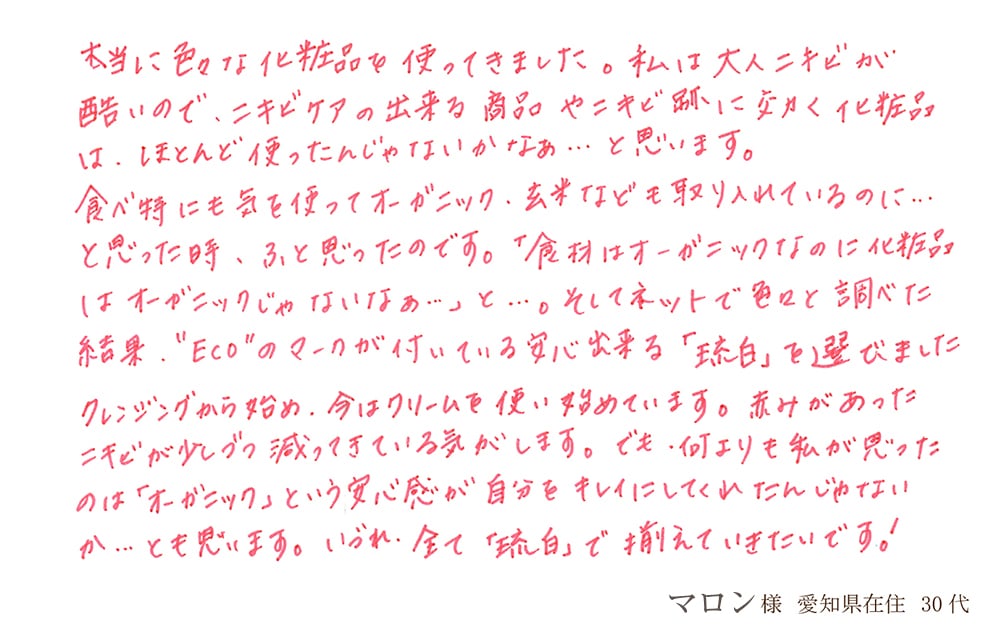 本当に色々な化粧品を使ってきました。私は大人ニキビが
酷いので、ニキビケアの出来る商品やニキビ跡に交力く化粧品
は、ほとんど使ったんじゃないかなぁ…と思います。
食べ特にも気を使ってオーガニック、玄米なども取り入れているのに…
と思った時、ふと思ったのです。「食材はオーガニックなのに化粧品
はオーガニックじゃないなぁ…」と…。そしてネットで色々と調べた
結果、"ECO"のマークが付いている安心出来る「琉白」を選びました
クレンジングから始め、今はクリームを使い始めています。赤みがあった
ニキビが少しづつ減ってきている気がします。でも、何よりも私が思った
のは「オーガニック」という安心感が自分をキレイにしてくれたんじゃない
か…とも思います。いづれ、全て「琉白」で揃えていきたいです!
マロン様 愛知県在住 30代